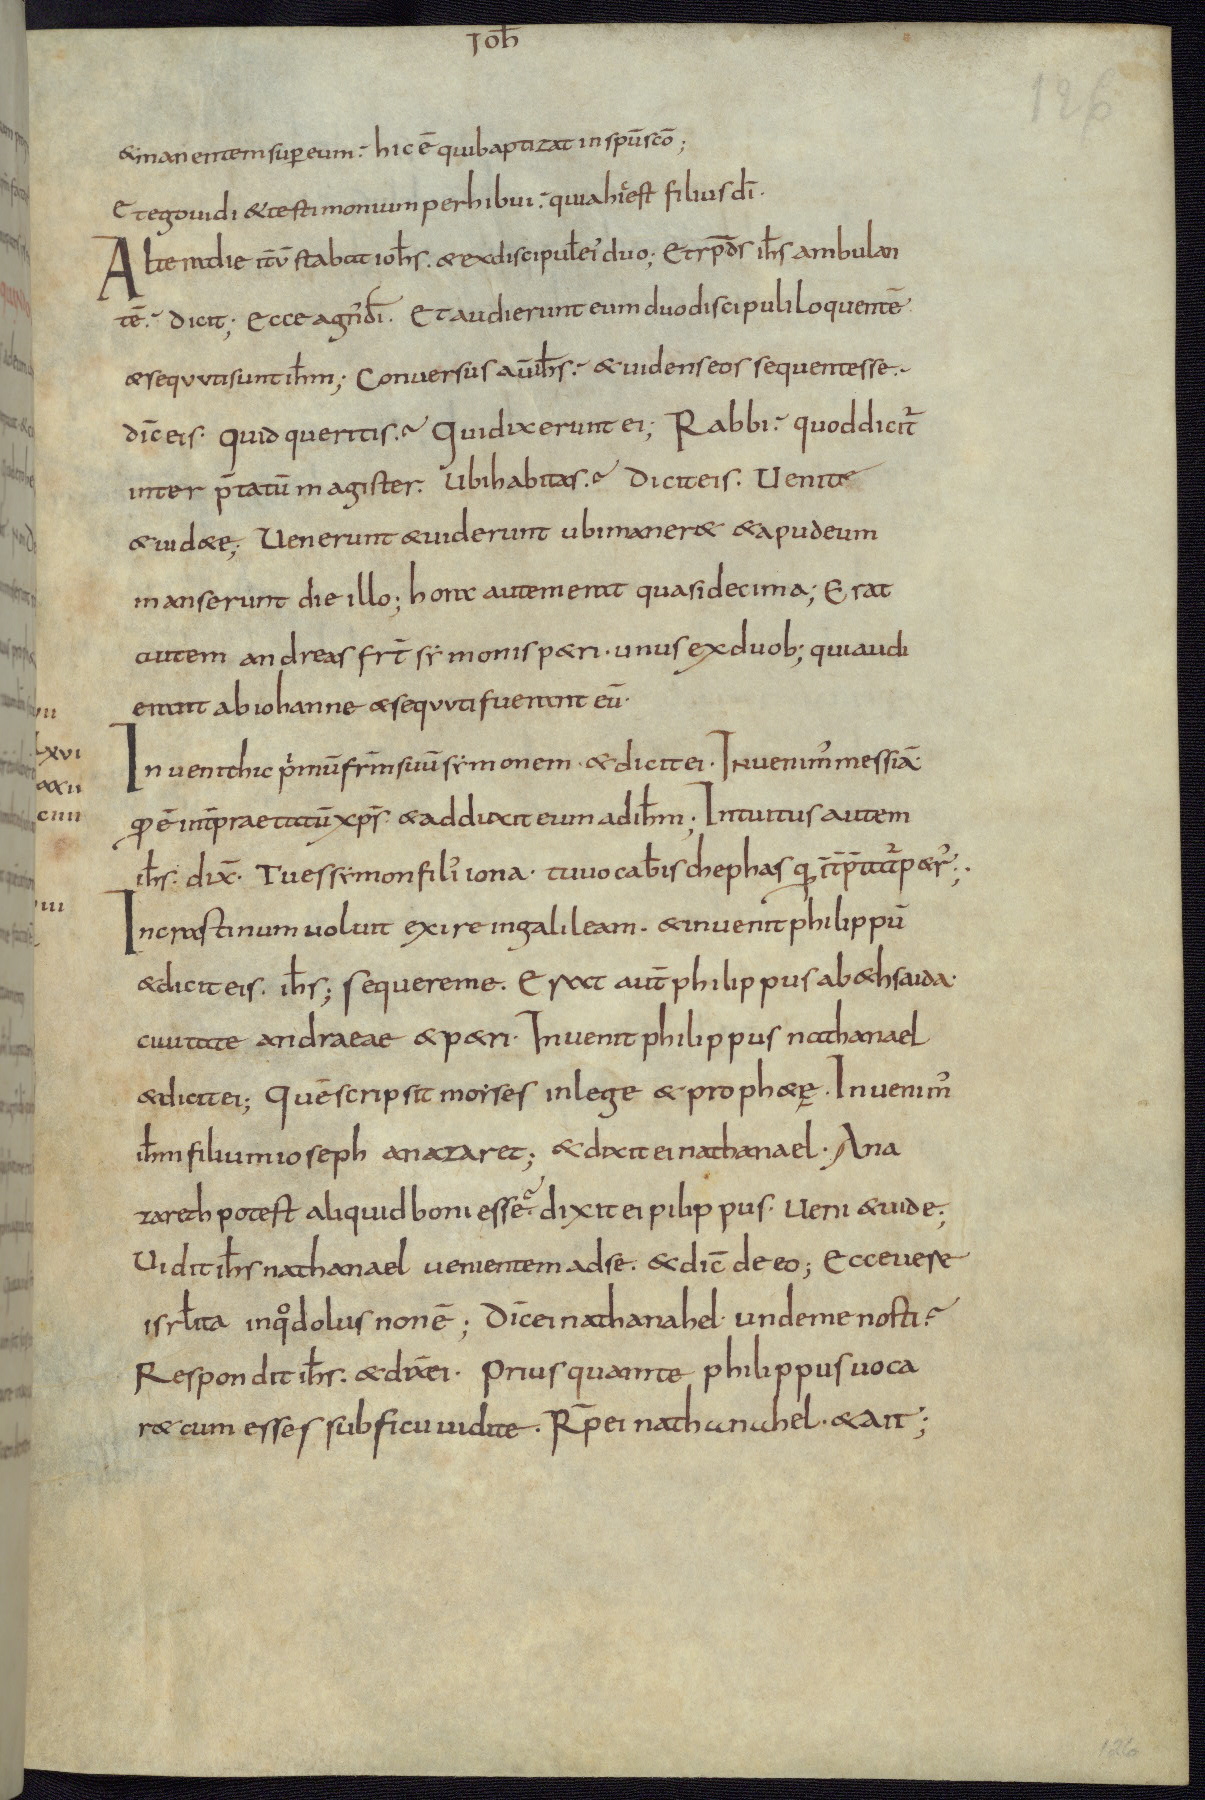 Ioħ
126
& manentem super eum. hic ē qui baptizat in spū scō;
Et ego uidi & testimonium perhibui. quia hic est filius dī.
Altera die itū stabat ioħs. & ex discipul ei duo; Et rp̄ds iħs ambulan
tē. dicit; Ecce agn dī. Et audierunt eum duo discipuli loquentē
& sequuti sunt iħm; Conuersus aū iħs. & uidens eos sequentes se.
dic̄ eis. Quid queritis. Qui dixerunt ei; Rabbi. quod dicit
inter p̄tatū magister. Ubi habitas. Dicit eis. Uenite
& uid&e; Uenerunt & uiderunt ubi maner& & apud eum
manserunt die illo; hora autem erat quasi decima; Erat
autem andreas frt̄ symonis p&ri. unus ex duob; qui audi
erant ab iohanne & sequuti fuerant eū.
Inuenit hic primū frm̄ suū symonem. & dicit ei. Inuenim messiā
qđ ē int̄praetatū xp̄s. & adduxit eum ad iħm; Intuitus autem
iħs. dix̄. Tu es symon fili iona. tu uocab̄is chephas qđ int̄p̄tat p&r;.
In crastinum uoluit exire in galileam. & inuenit philippū
& dicit eis. iħs; sequere me. Erat aut̄ philippus ab &hsaida.
ciuitate andraeae & p&ri. Inuenit philippus nathanael
& dicit ei; Quē scripsit moyses in lege & proph&ę. Inuenim
iħm filium ioseph a nazaret; & dixit ei nathanael. Ana
zareth potest aliquid boni esse. dixit ei pilippus. Ueni & uide;
Uidit iħs nathanael uenientem ad se. & dic̄ de eo; Ecce uere
isrł ita in qo dolus non ē; Dic̄ ei nathanahel. unde me nosti.
Respondit iħs. & dix̄ ei. Prius quam te philippus uoca
r& cum esses sub ficu uidi te. Rp̄ ei nathanahel. & ait;
VII
LXVI
XXII
CIIII
III
126